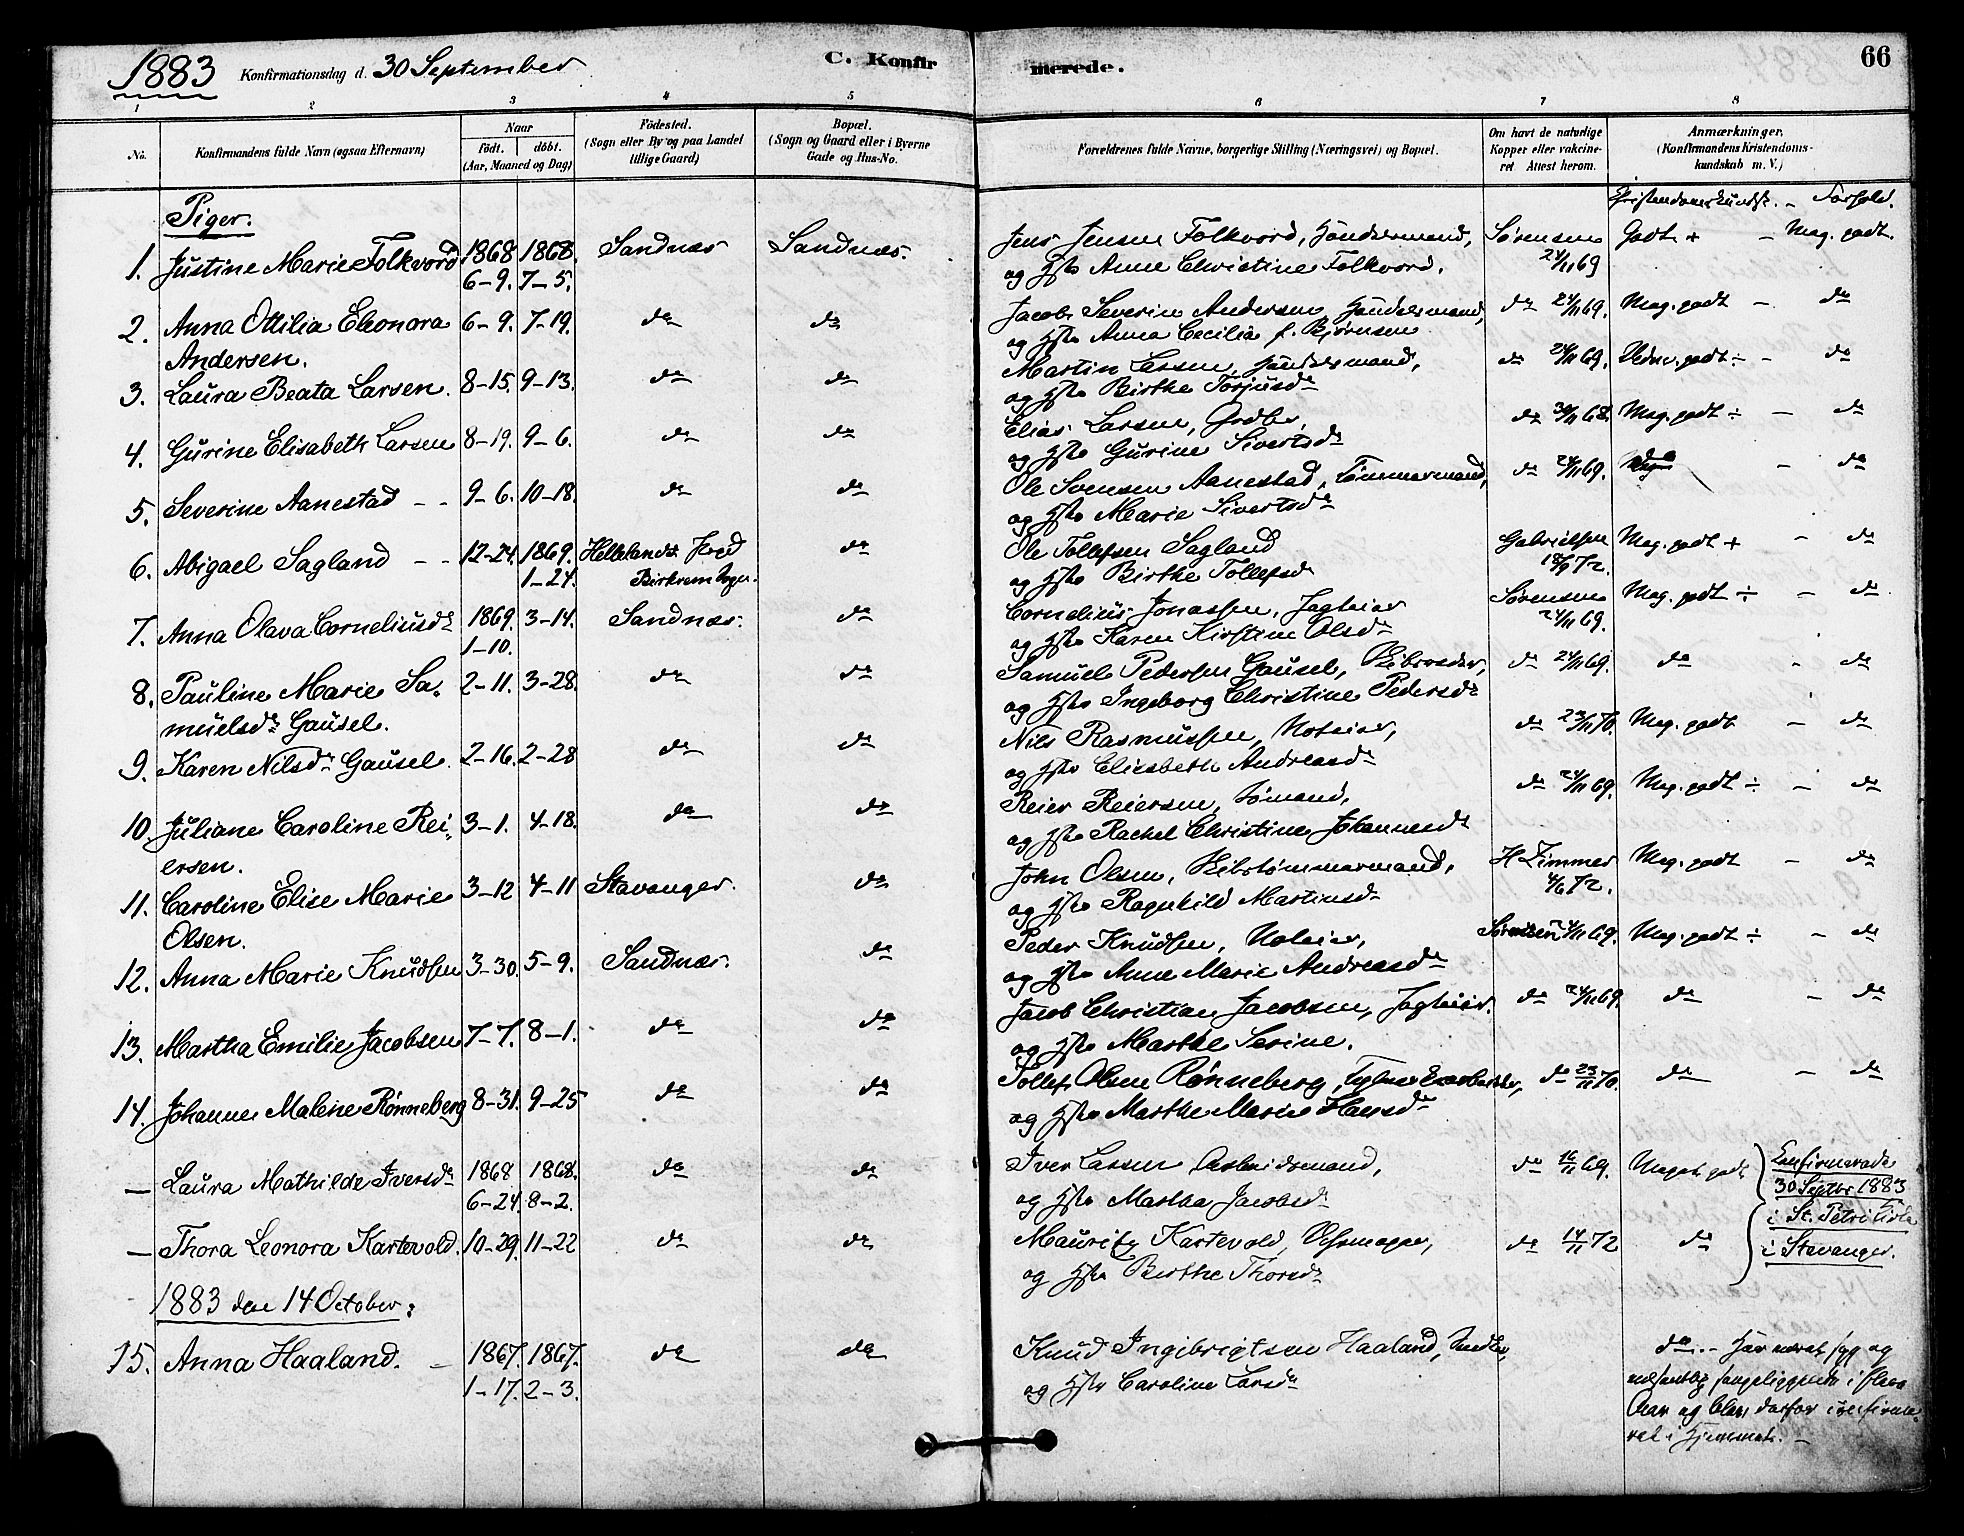 1883 Konfirmationsdag d. 30 September
C. Konfirmerede.
66
1 2 3 4 5 6 7 8
No.
Konfirmandens fulde Navn (ogsaa Efternavn)
Naar
födt. döbt.
(Aar, Maaned og Dag)
Födested.
(Sogn eller By og paa Landet
tillige Gaard)
Bopæl.
(Sogn og Gaard eller i Byerne
Gade og Hus-No.
Forældrenes fulde Navne, borgerlige Stilling (Næringsvei) og Bopæl.
Om havt de naturlige
Kopper eller vakcine-
ret Attest herom.
Anmærkninger,
(Konfirmandens Kristendoms-
kundskab m. V.)
Piger.
Kristendomskundsk. – Forhold.
1. Justine Marie Folkvord 1868 1868. Sandnæs Sandnæs. Jens Jensen Folkvord, Handelsmand, Sørensen Godt + – Meg. godt.
6–9. 7–5. og Hstr Anne Christine Folkvord. 24/11 69
2. Anna Ottilia Eleonora 6–9. 7–19. do do Jacob Severin Andersen, Handelsmand, do 24/11 69. Meg. godt – do
Andersen. og Hstr Anna Cecilia f. Bjørnsen
3. Laura Beata Larsen. 8–15. 9–13. do do Martin Larsen, Handelsmand, do 24/11 69. godt ÷ – do
og Hstr Birthe Torjusdr
4. Gurine Elisabeth Larsen 8–19. 9–6. do do Elias Larsen, do 68. Meg. godt ÷ – do
og Hstr Gurine Sivertsdr
5. Severine Aanestad – – 9–6. 10–18. do do Ole Svensen Aanestad, Tømmermand, do 24/11 69. do – do
og Hstr Marie Sivertsdr
6. Abigael Sagland – – 12–24. 1869. Hellelands Præd do Ole Tollefsen Sagland Gabrielsen Meg. godt + – do
1–24. Birkrem Sogn. og Hstr Birthe Tollefsdr 18/9 72.
7. Anna Olava Corneliusdr 1869. 3–14. Sandnæs. do Cornelius Jonassen, Jagteier Sørensen Meg. godt ÷ – do
1–10. og Hstr Karen Kirstine Olsdr 24/11 69.
8. Pauline Marie Sa- 2–11. 3–28. do do Samuel Pedersen Gausel, do 24/11 69. do – do
muelsdr Gausel. og Hstr Ingeborg Christine Pedersdr
9. Karen Nilsdr Gausel. 2–16. 2–28 do do Nils Rasmussen, Noteier, do 23/11 70. Meg. godt – do
og Hstr Elisabeth Andreasdr
10. Juliane Caroline Rei- 3–1. 4–18. do do Reier Reiersen, Sømand, do 24/11 69. Meg. godt ÷ – do
ersen. og Hstr Rachel Christine Johannesdr
11. Caroline Elise Marie 3–12 4–11 Stavanger. do John Olsen, Skibstømmermand, H Zimmer Meg. godt – do
Olsen. og Hstr Ragnhild Martinsdr 4/6 72.
12. Anna Marie Knudsen 3–30. 5–9. Sandnæs. do Peder Knudsen, Noteier, Sørensen 24/11 69. Meg. godt ÷ – do
og Hstr Anne Marie Andreasdr
13. Martha Emilie Jacobsen 7–7. 8–1. do do Jacob Christian Jacobsen, Jagteier. do 24/11 69. do – do
og Hstr Marthe Serine.
14. Johanne Malene Rønneberg 8–31. 9–25 do do Tollef Olsen Rønneberg, do 23/11 70. do – do
og Hstr Marthe Marie Hansdr
– Laura Mathilde Iversdr 1868 1868. do do Iver Larsen Arbeidsmand, do 16/11 69. Meget godt Konfirmerede
6–24. 8–2. og Hstr Martha Jacobsdr 30 Septbr 1883
– Thora Leonora Kartevold. 10–29. 11–22 do do Mauritz Kartevold, do 14/11 72 do i St. Petri Kirke
og Hstr Birthe Thorsdr i Stavanger.
1883 den 14 October:
15. Anna Haaland. – 1867. 1867. do do Knud Ingebrigtsen Haaland, do. – Har været syg og
1–17. 2–3. og Hstr Caroline Larsdr sengeliggende i flere
Aar og blev derfor confirme-
ret i Hjemmet. –